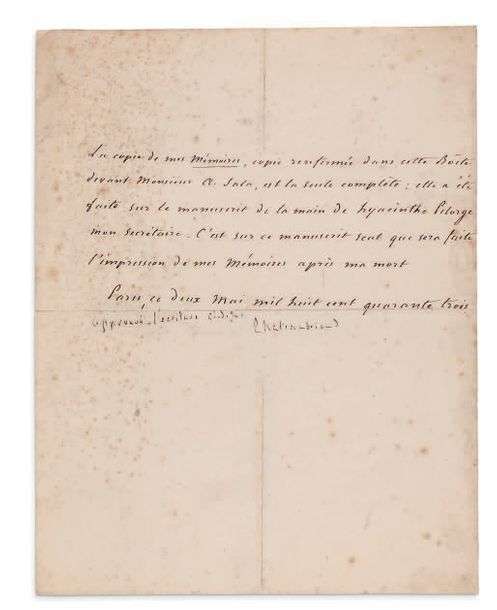 La copie de mes Mémoires, copie renfermée dans cette Boîte
devant Monsieur A. Sala, est la seule complète ; elle a été
faite sur le manuscrit de la main de hyacinthe Pilorge
mon secrétaire. C'est sur ce manuscrit seul que sera faite
l'impression de mes Mémoires après ma mort
Paris, ce deux Mai mil huit cent quarante trois
approuvé l'écriture ci-dessus Chateaubriand